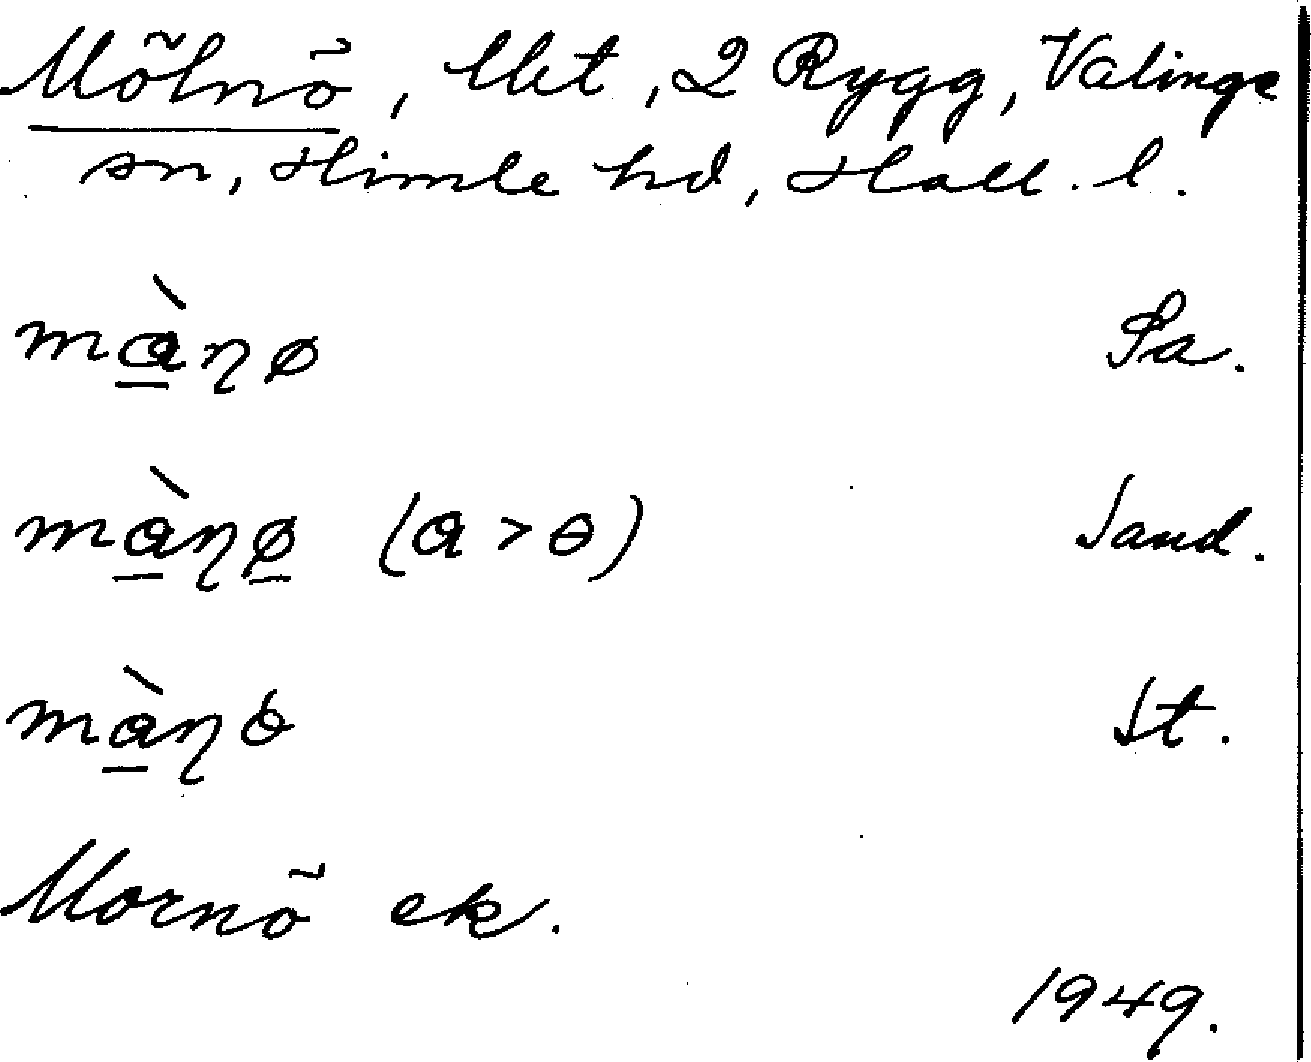 Mölnö, Ubt, 2 Rygg, Valinge
sn, Himle hd, Hall. l.
mɑ̠̀ɳø Sa.
mɑ̠̀ɳø̠ (ɑ > ɵ) Sand.
mɑ̠̀ɳò St.
Mornö ek.
1949.